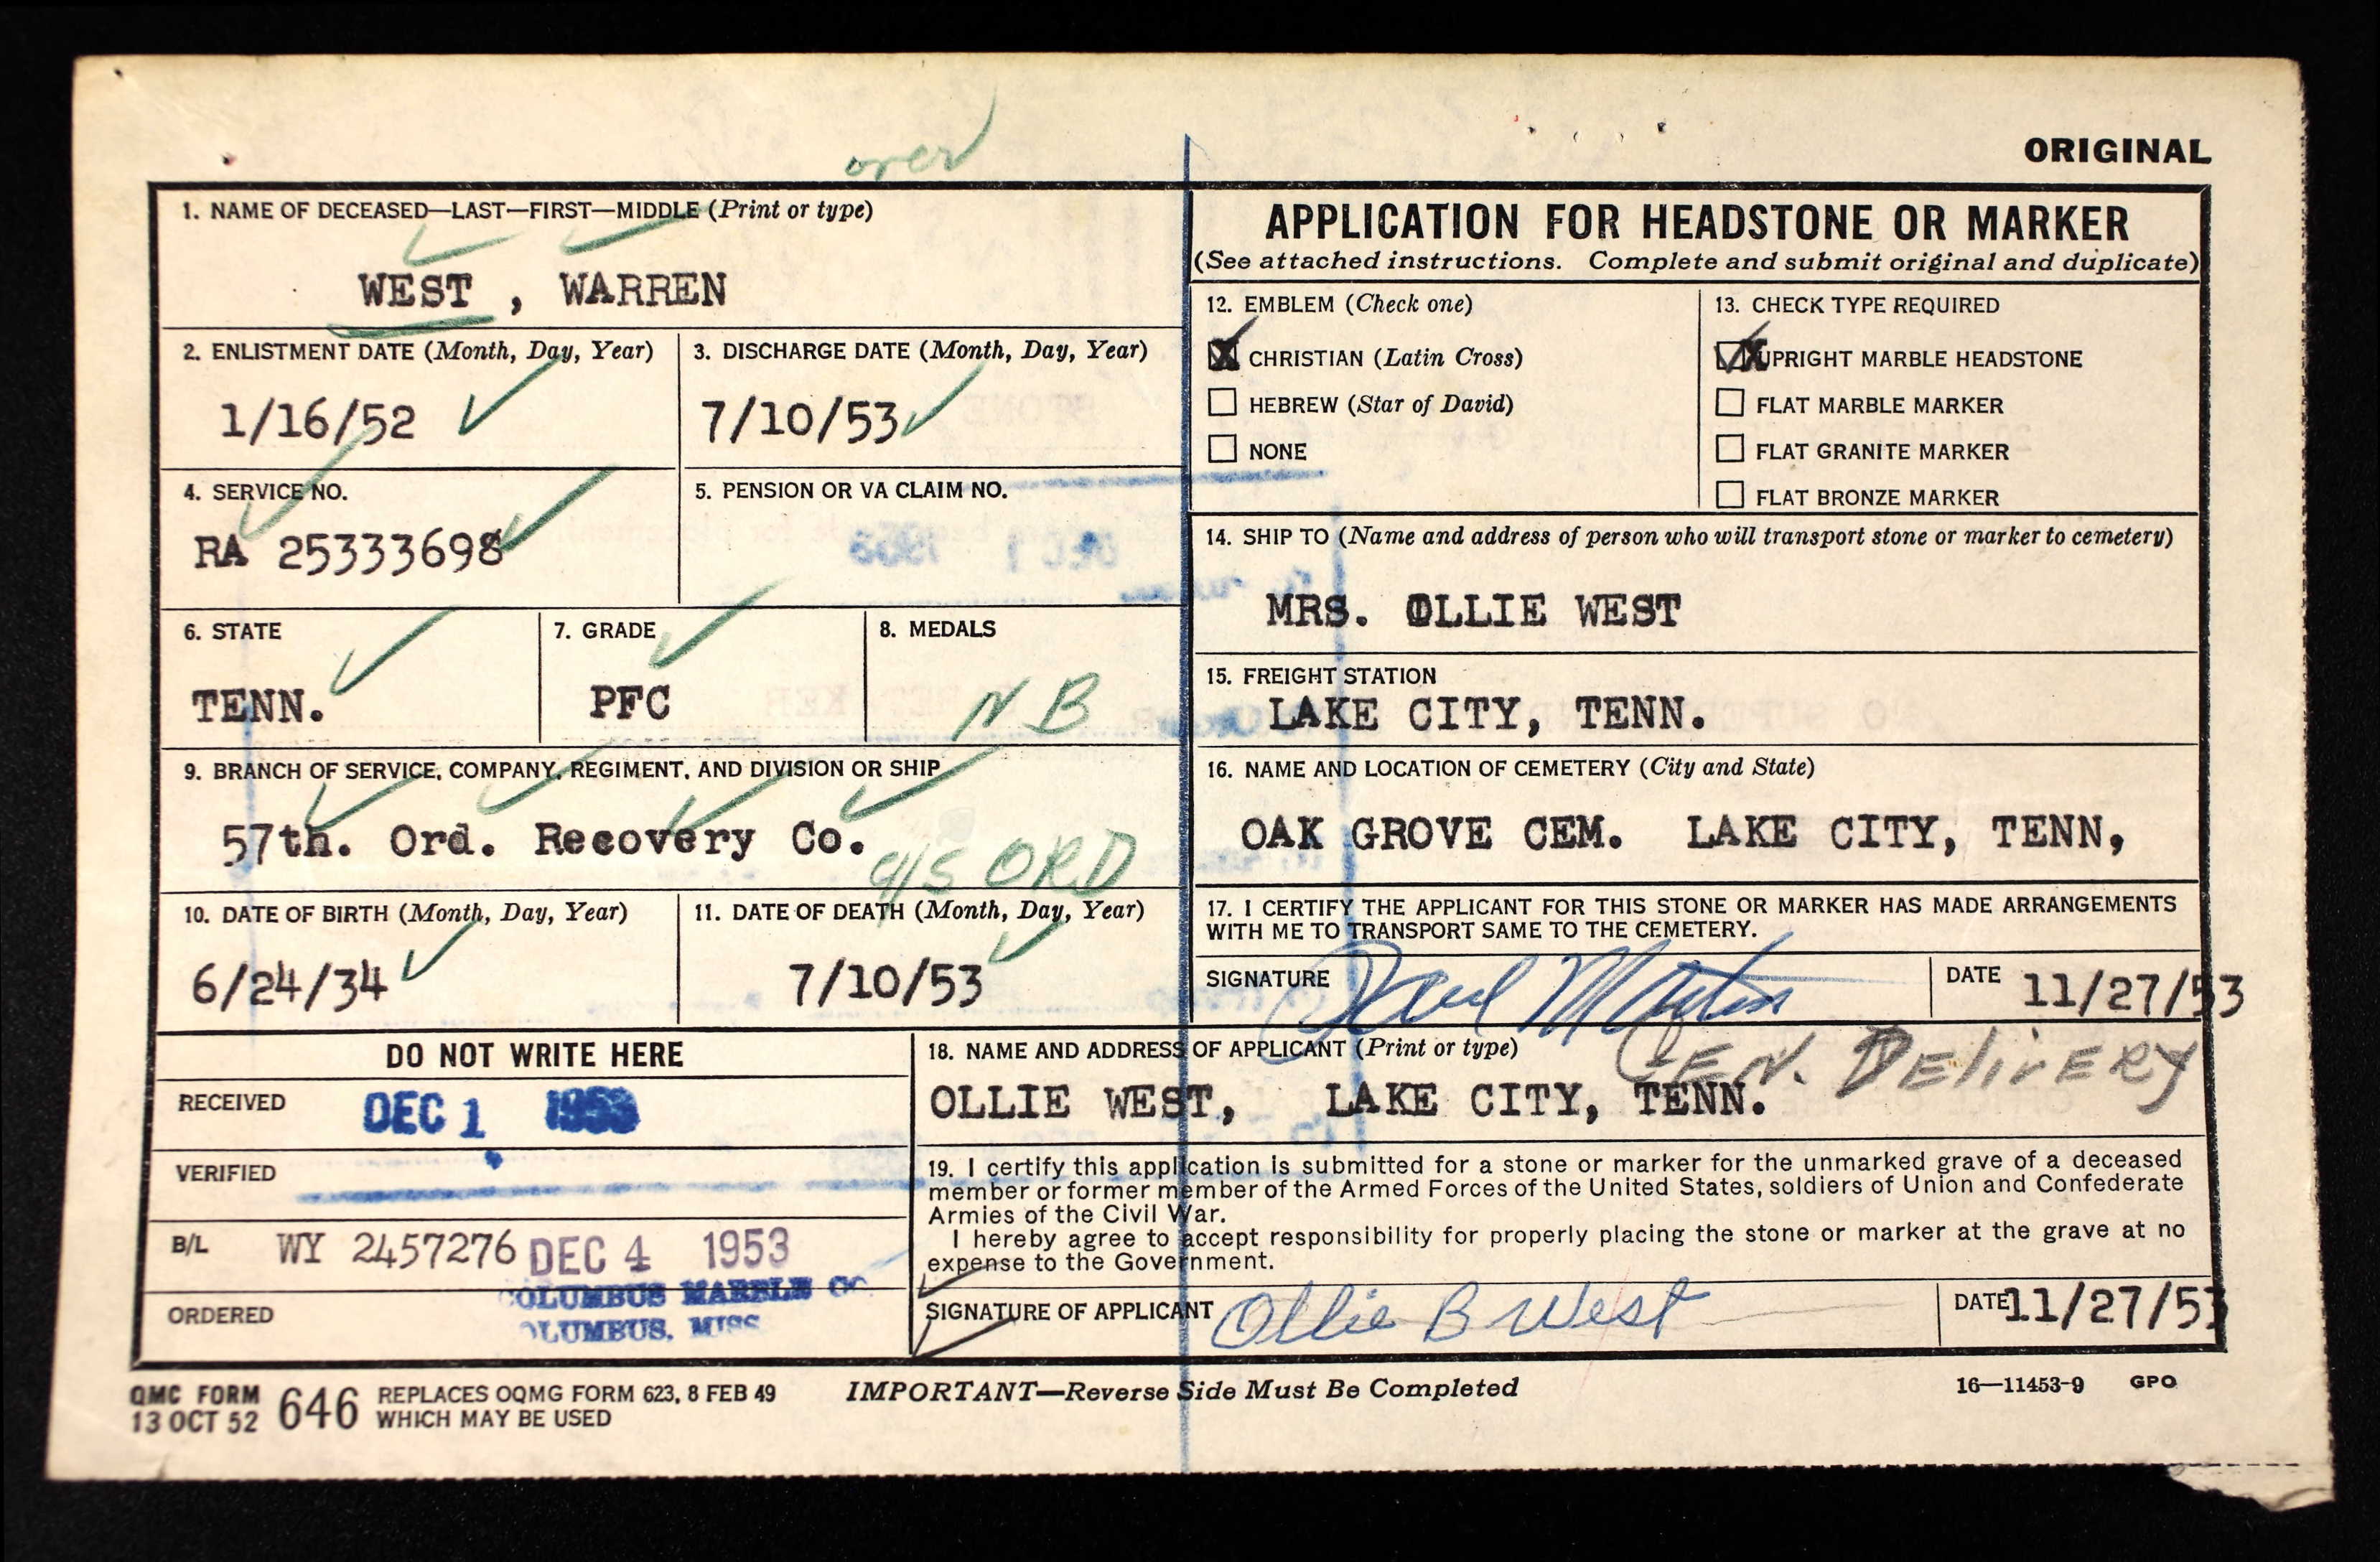 over
ORIGINAL
1. NAME OF DECEASED—LAST—FIRST—MIDDLE (Print or type)
WEST , WARREN
2. ENLISTMENT DATE (Month, Day, Year)
1/16/52
3. DISCHARGE DATE (Month, Day, Year)
7/10/53
4. SERVICE NO.
RA 25333698
5. PENSION OR VA CLAIM NO.
6. STATE
TENN.
7. GRADE
PFC
8. MEDALS
N B
9. BRANCH OF SERVICE, COMPANY, REGIMENT, AND DIVISION OR SHIP
57th. Ord. Recovery Co.
ORD
10. DATE OF BIRTH (Month, Day, Year)
6/24/34
11. DATE OF DEATH (Month, Day, Year)
7/10/53
APPLICATION FOR HEADSTONE OR MARKER
(See attached instructions. Complete and submit original and duplicate)
12. EMBLEM (Check one)
CHRISTIAN (Latin Cross)
HEBREW (Star of David)
NONE
13. CHECK TYPE REQUIRED
UPRIGHT MARBLE HEADSTONE
FLAT MARBLE MARKER
FLAT GRANITE MARKER
FLAT BRONZE MARKER
14. SHIP TO (Name and address of person who will transport stone or marker to cemetery)
MRS. OLLIE WEST
15. FREIGHT STATION
LAKE CITY, TENN.
16. NAME AND LOCATION OF CEMETERY (City and State)
OAK GROVE CEM. LAKE CITY, TENN,
17. I CERTIFY THE APPLICANT FOR THIS STONE OR MARKER HAS MADE ARRANGEMENTS
WITH ME TO TRANSPORT SAME TO THE CEMETERY.
SIGNATURE
DATE 11/27/53
DO NOT WRITE HERE
RECEIVED DEC 1 1953
VERIFIED
B/L WY 2457276 DEC 4 1953
ORDERED
COLUMBUS MARBLE CO.
COLUMBUS, MISS
18. NAME AND ADDRESS OF APPLICANT (Print or type)
GEN. DELIVERY
OLLIE WEST, LAKE CITY, TENN.
19. I certify this application is submitted for a stone or marker for the unmarked grave of a deceased
member or former member of the Armed Forces of the United States, soldiers of Union and Confederate
Armies of the Civil War.
I hereby agree to accept responsibility for properly placing the stone or marker at the grave at no
expense to the Government.
SIGNATURE OF APPLICANT Ollie B West
DATE 11/27/53
QMC FORM
13 OCT 52
646
REPLACES OQMG FORM 623, 8 FEB 49
WHICH MAY BE USED
IMPORTANT—Reverse Side Must Be Completed
16—11453-9 GPO